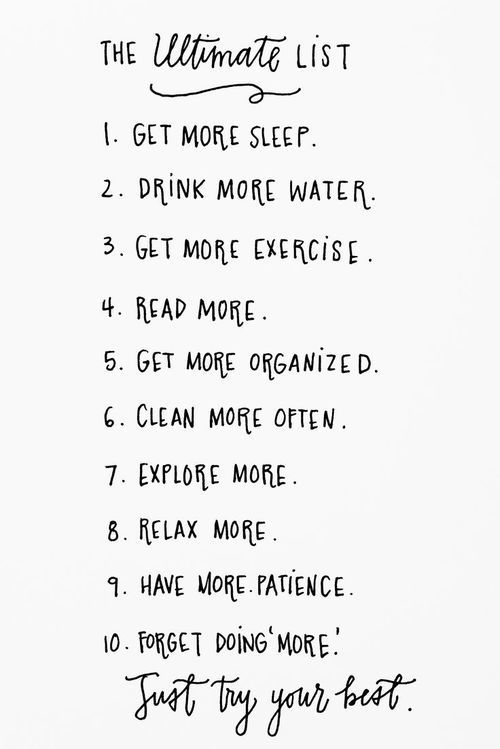 THE Ultimate LiST
1. GET MORE SLEEP.
2. DRiNK MORE WATER.
3. GET MORE EXERCiSE.
4. READ MORE.
5. GET MORE ORGANiZED.
6. CLEAN MORE OFTEN.
7. EXPLORE MORE.
8. RELAX MORE.
9. HAVE MORE.PATiENCE.
10. FORGET DOiNG 'MORE.'
Just try your best.